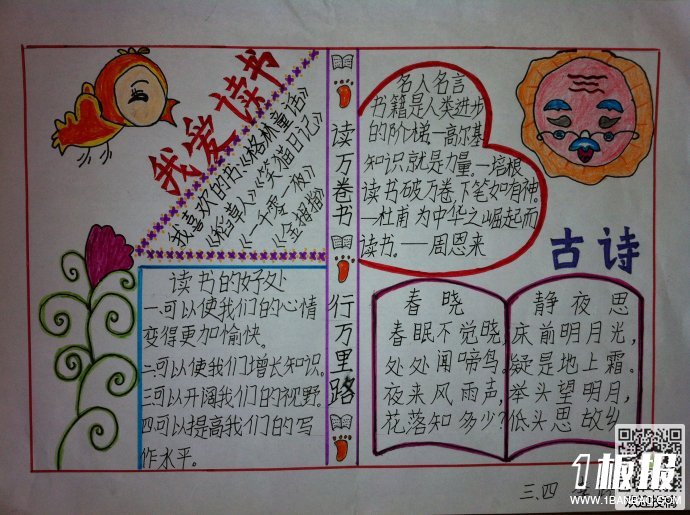 我爱读书
我喜欢的书《格林童话》
《稻草人》《笑猫日记》
《一千零一夜》
《金拇指》
读书的好处
一可以使我们的心情
变得更加愉快。
二可以使我们增长知识。
三可以开阔我们的视野。
四可以提高我们的写
作水平。
读万卷书 行万里路
名人名言
书籍是人类进步
的阶梯—高尔基
知识就是力量。—培根
读书破万卷下笔如有神。
—杜甫 为中华之崛起而
读书。——周恩来
古诗
春晓
春眠不觉晓,
处处闻啼鸟。
夜来风雨声,
花落知多少?
静夜思
床前明月光,
疑是地上霜。
举头望明月,
低头思故乡
三、四
1板报
WWW.1BANBAO.COM
欢迎投稿